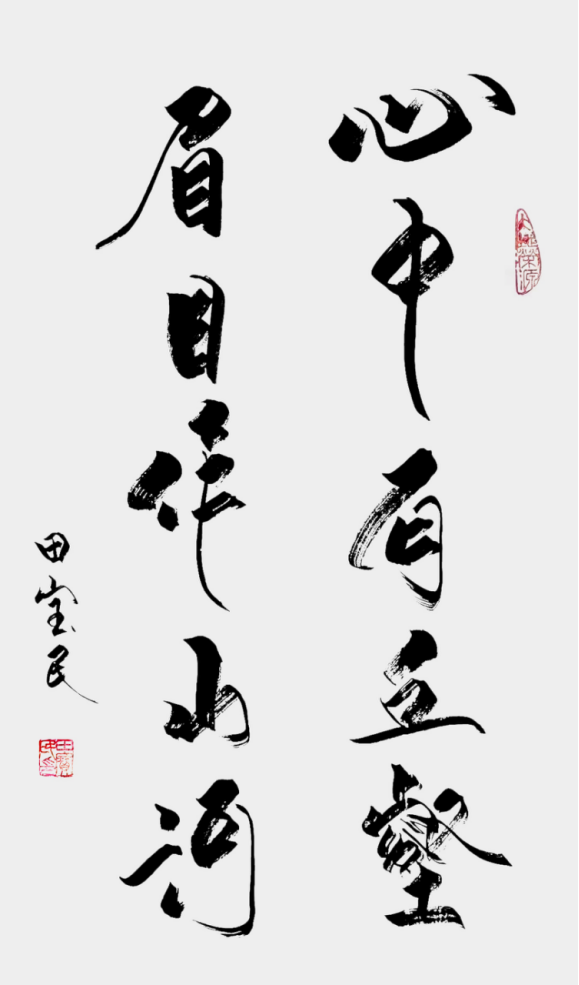 心中有丘壑
眉目作山河
田宝民